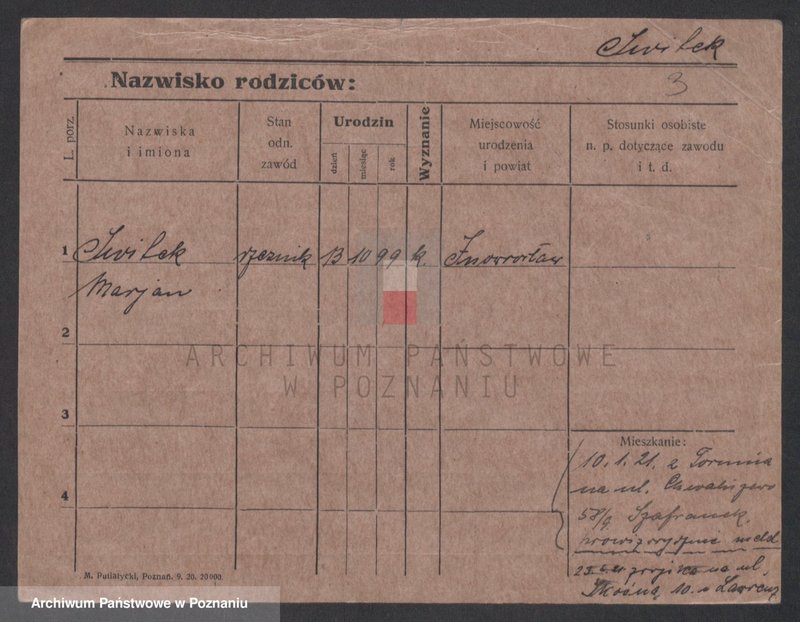 Iwilek
3
Nazwisko rodziców:
L. porz.
Nazwiska
i imiona
Stan
odn.
zawód
Urodzin
dzień
miesiąc
rok
Wyznanie
Miejscowość
urodzenia
i powiat
Stosunki osobiste
n. p. dotyczące zawodu
i t. d.
1 rzeźnik 13 10 99 k. Inowrocław
Marjan
2
3
4
ARCHIWUM PAŃSTWOWE
W POZNANIU
Mieszkanie:
10. 1. 21. z Torunia
na ul. Chwaliszewo
58/9 Szafranek
prowizorycznie meld
na ul.
10.
M. Putiatycki, Poznań. 9. 20. 20000.
Archiwum Państwowe w Poznaniu